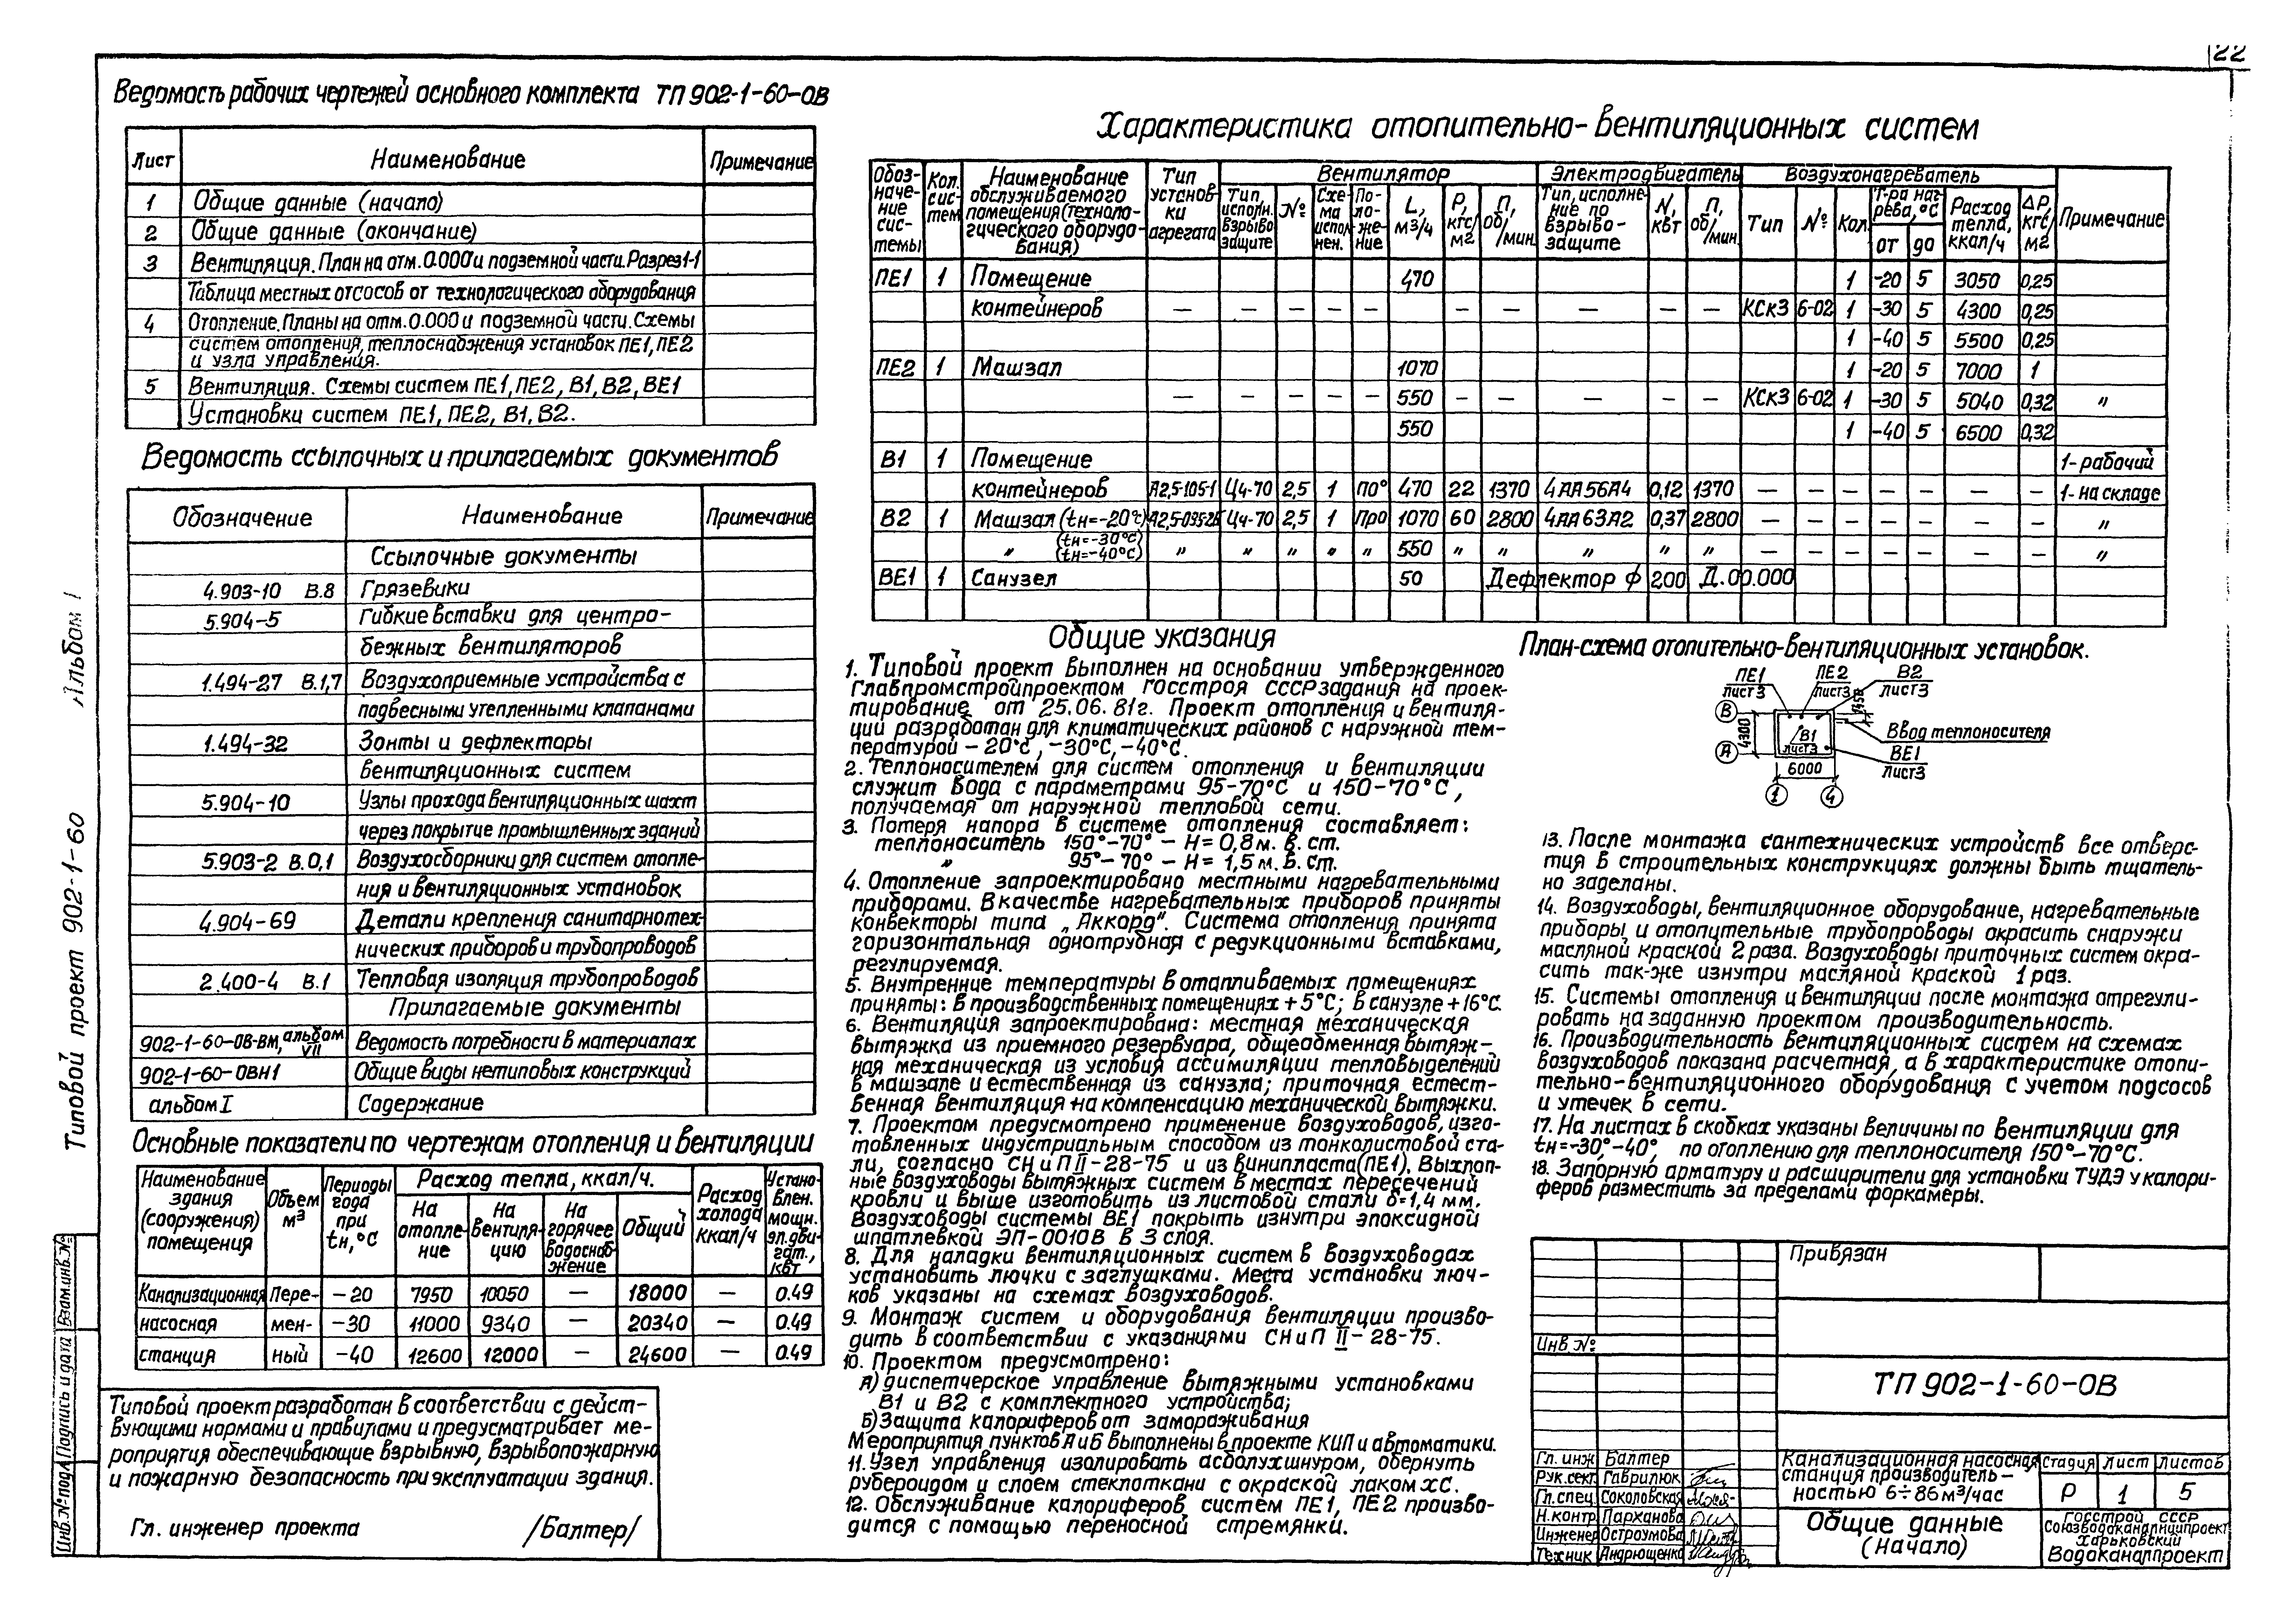 22
Ведомость рабочих чертежей основного комплекта ТП 902-1-60-ОВ
Лист Наименование Примечание
1 Общие данные (начало)
2 Общие данные (окончание)
3 Вентиляция. План на отм. 0.000 и подземной части. Разрез 1-1
Таблица местных отсосов от технологического оборудования
4 Отопление. Планы на отм. 0.000 и подземной части. Схемы
систем отопления, теплоснабжения установок ПЕ1, ПЕ2
и узла управления.
5 Вентиляция. Схемы систем ПЕ1, ПЕ2, В1, В2, ВЕ1
Установки систем ПЕ1, ПЕ2, В1, В2.
Ведомость ссылочных и прилагаемых документов
Обозначение Наименование Примечание
Ссылочные документы
4.903-10 В.8 Грязевики
5.904-5 Гибкие вставки для центро-
бежных вентиляторов
1.494-27 В.1,7 Воздухоприемные устройства с
подвесными утепленными клапанами
1.494-32 Зонты и дефлекторы
вентиляционных систем
5.904-10 Узлы прохода вентиляционных шахт
через покрытие промышленных зданий
5.903-2 В.0,1 Воздухосборники для систем отопле-
ния и вентиляционных установок
4.904-69 Детали крепления санитарнотех-
нических приборов и трубопроводов
2.400-4 В.1 Тепловая изоляция трубопроводов
Прилагаемые документы
902-1-60-ОВ-ВМ, альбом VII Ведомость потребности в материалах
902-1-60-ОВН1 Общие виды нетиповых конструкций
альбом I Содержание
Основные показатели по чертежам отопления и вентиляции
Наименование здания (сооружения) помещения Объем м³ Периоды года при tн, °С Расход тепла, ккал/ч. Расход холода ккал/ч Установлен. мощн. эл.двигат., квт
На отопление На вентиляцию На горячее водоснабжение Общий
Канализационная Пере- -20 7950 10050 — 18000 — 0.49
насосная мен- -30 11000 9340 — 20340 — 0.49
станция ный -40 12600 12000 — 24600 — 0.49
Типовой проект разработан в соответствии с дейст-
вующими нормами и правилами и предусматривает ме-
роприятия обеспечивающие взрывную, взрывопожарную
и пожарную безопасность при эксплуатации здания.
Гл. инженер проекта /Балтер/
Альбом I
Типовой проект 902-1-60
Взам.инв.№
Подпись и дата
Инв.№ подл.
Характеристика отопительно-вентиляционных систем
Обозначение системы Кол. систем Наименование обслуживаемого помещения (технологического оборудования) Тип установки агрегата Вентилятор Электродвигатель Воздухонагреватель Примечание
Тип, исполн. взрывозащите № Схема исполнен. Положение L, м³/ч Р, кгс/м² П, об/мин. Тип, исполнение по взрывозащите N, квт П, об/мин. Тип № Кол. Т-ра нагрева, °С от до Расход тепла, ккал/ч ΔР, кгс/м²
ПЕ1 1 Помещение 470 1 -20 5 3050 0,25
контейнеров — — — — — — — — — — КСк3 6-02 1 -30 5 4300 0,25
1 -40 5 5500 0,25
ПЕ2 1 Машзал 1070 1 -20 5 7000 1
— — — — — 550 — — — — — КСк3 6-02 1 -30 5 5040 0,32 "
550 1 -40 5 6500 0,32
В1 1 Помещение 1-рабочий
контейнеров А2,5-105-1 Ц4-70 2,5 1 П0° 470 22 1370 4АА56А4 0,12 1370 — — — — — — — 1-на складе
В2 1 Машзал (tн=-20°С) Ц4-70 2,5 1 Пр0 1070 60 2800 4АА63А2 0,37 2800 — — — — — — — "
" (tн=-30°С) (tн=-40°С) " " " " " 550 " " " " " — — — — — — — "
ВЕ1 1 Санузел 50 Дефлектор ф 200 Д.00.000
Общие указания
1. Типовой проект выполнен на основании утвержденного
Главпромстройпроектом Госстроя СССР задания на проек-
тирование от 25.06.81г. Проект отопления и вентиля-
ции разработан для климатических районов с наружной тем-
пературой -20°С, -30°С, -40°С.
2. Теплоносителем для систем отопления и вентиляции
служит вода с параметрами 95-70°С и 150-70°С,
получаемая от наружной тепловой сети.
3. Потеря напора в системе отопления составляет:
теплоноситель 150°-70° — Н=0,8м. в. ст.
" 95°-70° — Н=1,5м. в. ст.
4. Отопление запроектировано местными нагревательными
приборами. В качестве нагревательных приборов приняты
конвекторы типа „Аккорд". Система отопления принята
горизонтальная однотрубная с редукционными вставками,
регулируемая.
5. Внутренние температуры в отапливаемых помещениях
приняты: в производственных помещениях +5°С; в санузле +16°С.
6. Вентиляция запроектирована: местная механическая
вытяжка из приемного резервуара, общеобменная вытяж-
ная механическая из условия ассимиляции тепловыделений
в машзале и естественная из санузла; приточная естест-
венная вентиляция на компенсацию механической вытяжки.
7. Проектом предусмотрено применение воздуховодов, изго-
товленных индустриальным способом из тонколистовой ста-
ли, согласно СНиП II-28-75 и из винипласта (ПЕ1). Выхлоп-
ные воздуховоды вытяжных систем в местах пересечений
кровли и выше изготовить из листовой стали δ=1,4 мм.
Воздуховоды системы ВЕ1 покрыть изнутри эпоксидной
шпатлевкой ЭП-0010В в 3 слоя.
8. Для наладки вентиляционных систем в воздуховодах
установить лючки с заглушками. Места установки люч-
ков указаны на схемах воздуховодов.
9. Монтаж систем и оборудования вентиляции произво-
дить в соответствии с указаниями СНиП II-28-75.
10. Проектом предусмотрено:
А) диспетчерское управление вытяжными установками
В1 и В2 с комплектного устройства;
Б) Защита калориферов от замораживания
Мероприятия пунктов А и Б выполнены в проекте КИП и автоматики.
11. Узел управления изолировать асболухшнуром, обернуть
рубероидом и слоем стеклоткани с окраской лаком ХС.
12. Обслуживание калориферов систем ПЕ1, ПЕ2 произво-
дится с помощью переносной стремянки.
План-схема отопительно-вентиляционных установок.
ПЕ1 лист3
ПЕ2 лист3
В2 лист3
В
А
4300
В1 лист3
Ввод теплоносителя
ВЕ1 лист3
6000
1 4
13. После монтажа сантехнических устройств все отверс-
тия в строительных конструкциях должны быть тщатель-
но заделаны.
14. Воздуховоды, вентиляционное оборудование, нагревательные
приборы и отопительные трубопроводы окрасить снаружи
масляной краской 2 раза. Воздуховоды приточных систем окра-
сить так-же изнутри масляной краской 1 раз.
15. Системы отопления и вентиляции после монтажа отрегули-
ровать на заданную проектом производительность.
16. Производительность вентиляционных систем на схемах
воздуховодов показана расчетная, а в характеристике отопи-
тельно-вентиляционного оборудования с учетом подсосов
и утечек в сети.
17. На листах в скобках указаны величины по вентиляции для
tн=-30°,-40°, по отоплению для теплоносителя 150°-70°С.
18. Запорную арматуру и расширители для установки ТУДЭ у калори-
феров разместить за пределами форкамеры.
Привязан
Инв.№
ТП 902-1-60-ОВ
Гл. инж Балтер
Рук.сект. Гаврилюк
Гл.спец. Соколовская
Н.контр. Парханова
Инженер Остроумова
Техник Андрющенко
Канализационная насосная
станция производитель-
ностью 6÷86м³/час
Стадия Лист Листов
Р 1 5
Общие данные
(начало)
Госстрой СССР
Союзводоканалниипроект
Харьковский
Водоканалпроект